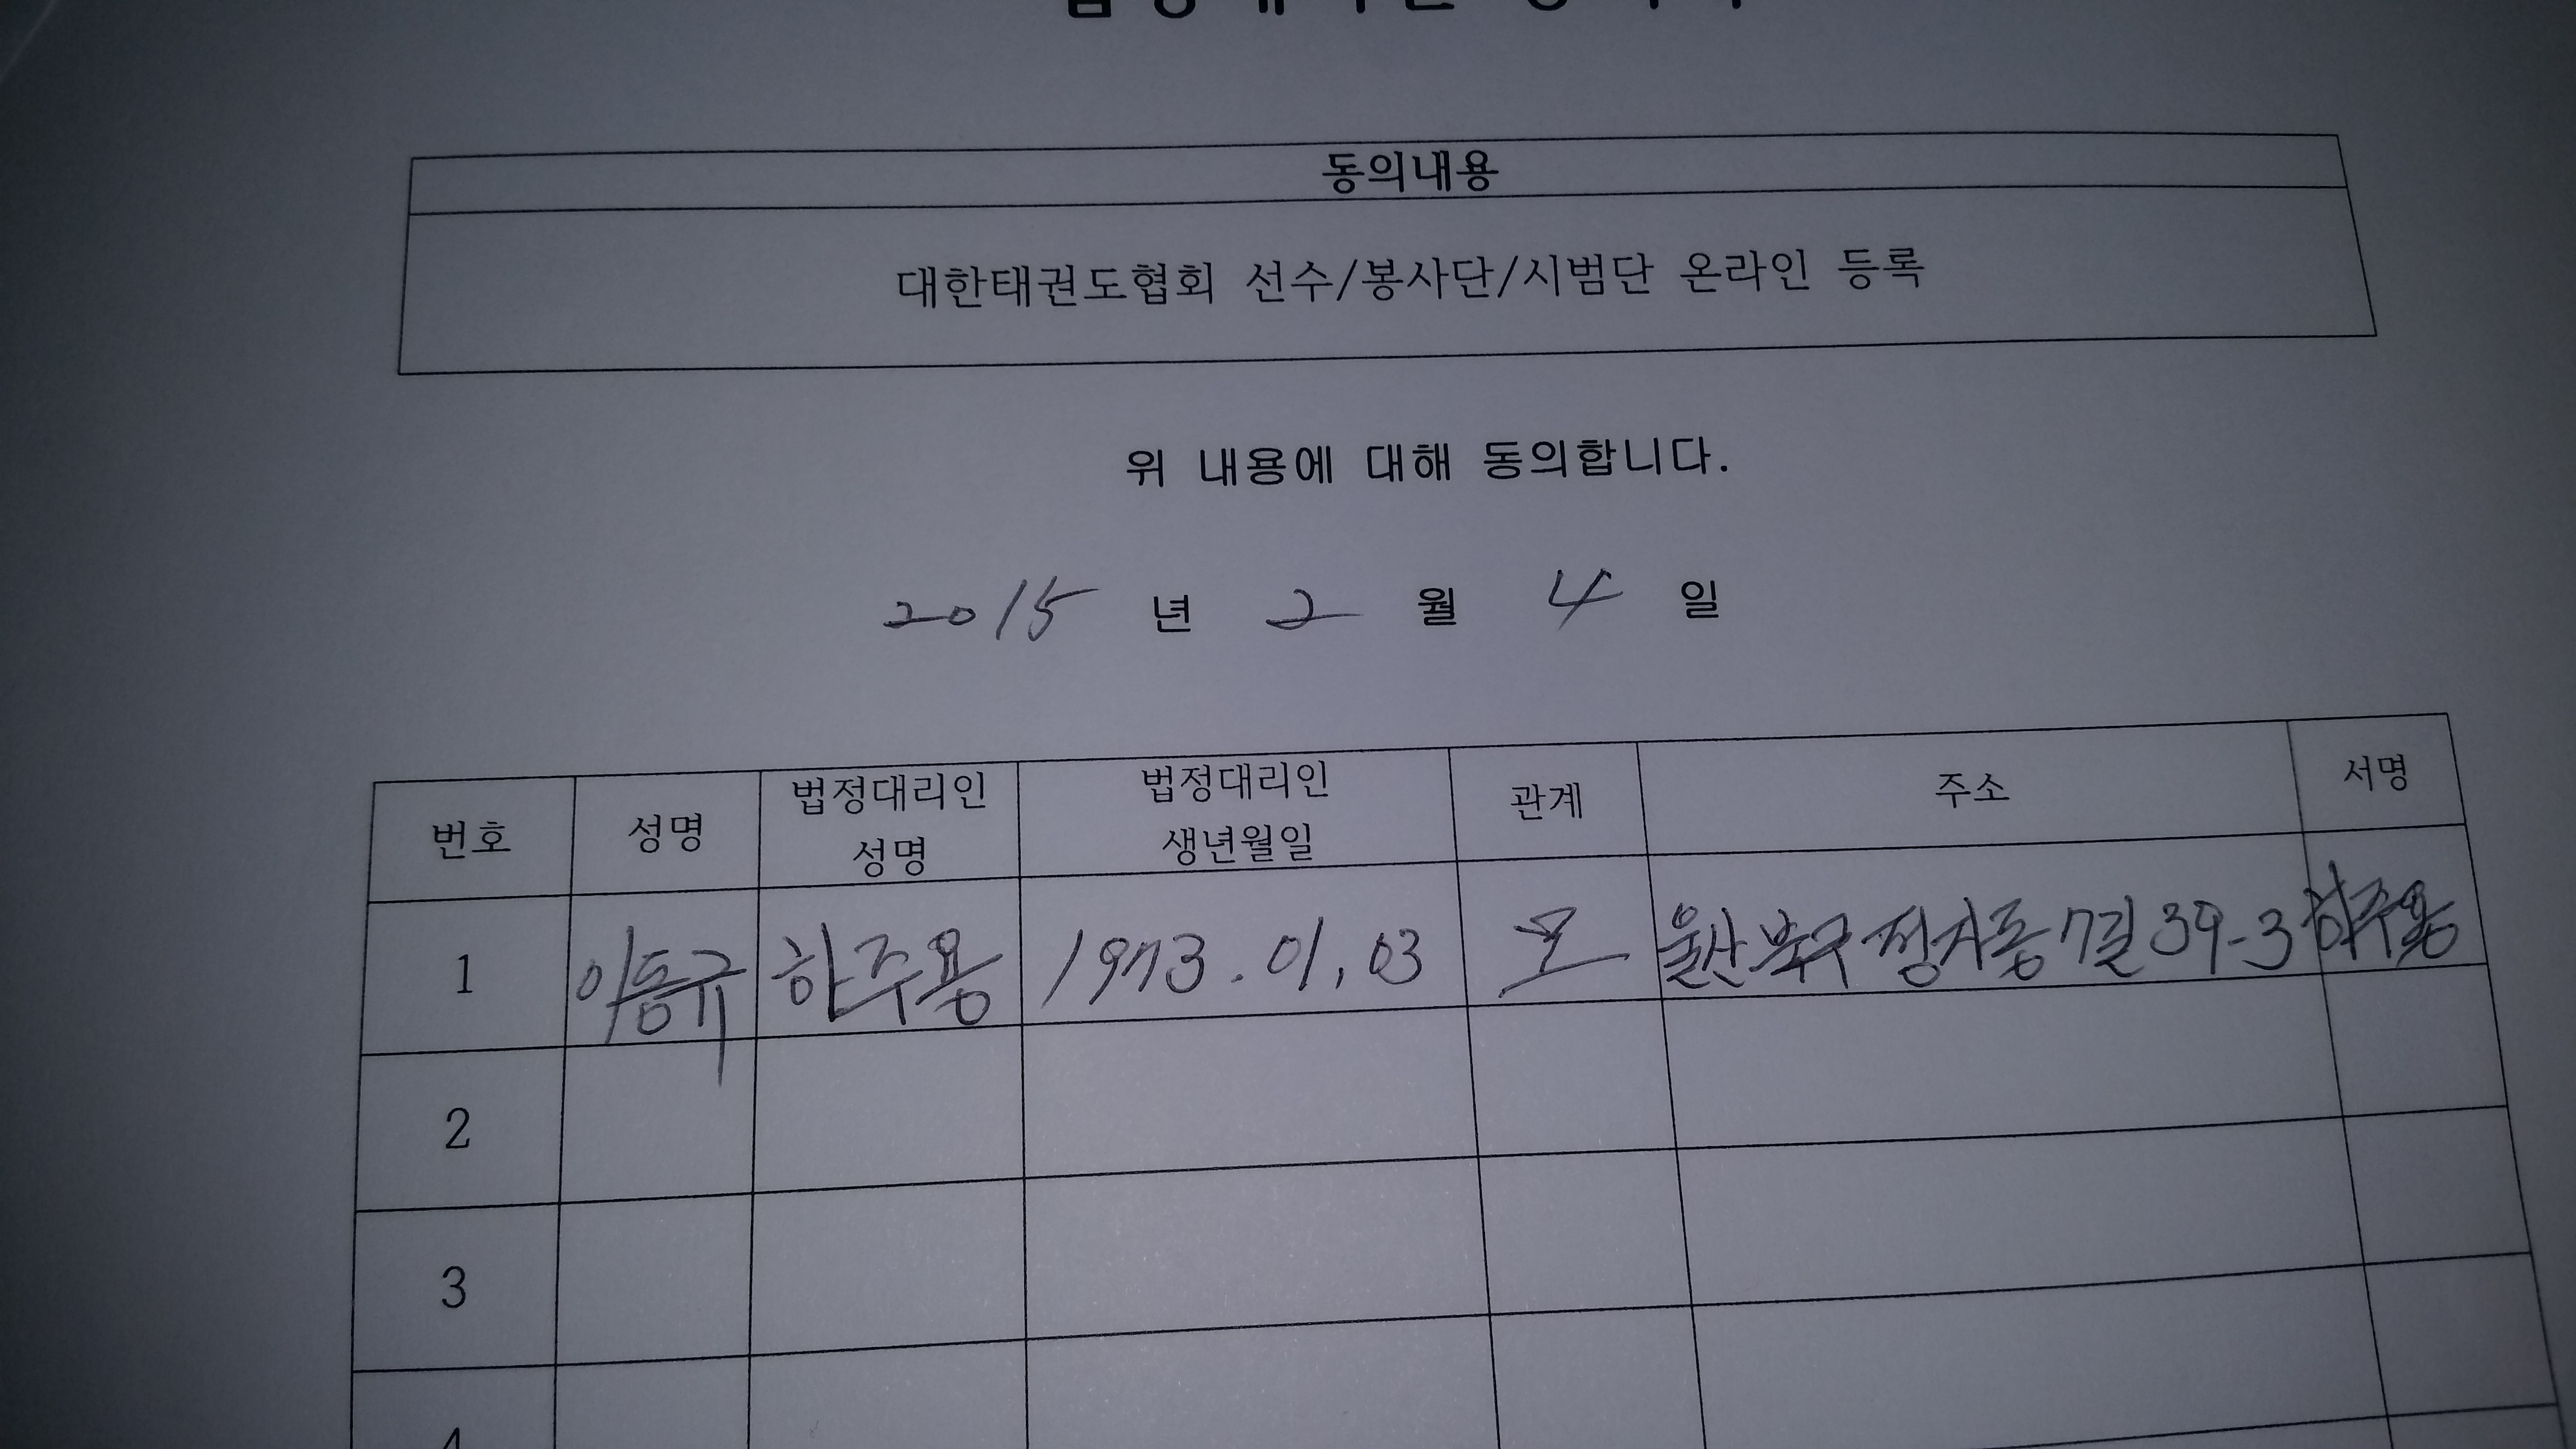 동의내용
대한태권도협회 선수/봉사단/시범단 온라인 등록
위 내용에 대해 동의합니다.
2015 년 2 월 4 일
번호 성명 법정대리인 성명 법정대리인 생년월일 관계 주소 서명
1 이동규 하주용 1973.01.03 모 울산 북구 정자동7길 39-3 하주용
2
3
4